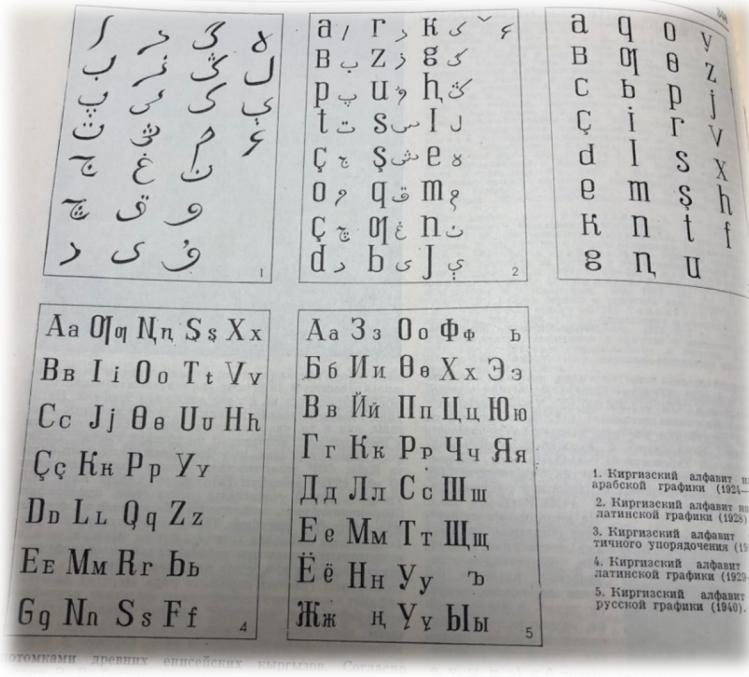 ا ر گ ە
ب ز ڭ ل
پ س ك ي
ت ش م ء
ج غ ن
چ ق و
د ى ۇ
1
a ا r ر к ك ˇ ء
в ب z ز g گ
p پ u ۋ ң ڭ
t ت s س l ل
ç ج ş ش e ە
o و q ق m م
ç چ ƣ غ n ن
d د ь ى j ي
2
a q o y
в ƣ ө z
c ь p j
ç i r v
d l s x
e m ş h
к n t f
g ң u
Aa Ƣƣ Ңң Şş Xx
Вв Ii Oo Tt Vv
Cc Jj Өө Uu Hh
Çç Кк Pp Yy
Dᴅ Lʟ Qq Zz
Eᴇ Mм Rr Ьь
Gg Nn Ss Ff
4
Аа Зз Оо Фф ь
Бб Ии Өө Хх Ээ
Вв Йй Пп Цц Юю
Гг Кк Рр Чч Яя
Дд Лл Сс Шш
Ее Мм Тт Щщ
Ёё Нн Уу ъ
Жж ң Үү Ыы
5
1. Киргизский алфавит
арабской графики (1924—
2. Киргизский алфавит на
латинской графики (1928)
3. Киргизский алфавит
тичного упорядочения (19
4. Киргизский алфавит
латинской графики (1929-
5. Киргизский алфавит
русской графики (1940).
потомками древних енисейских кыргызов. Согласно